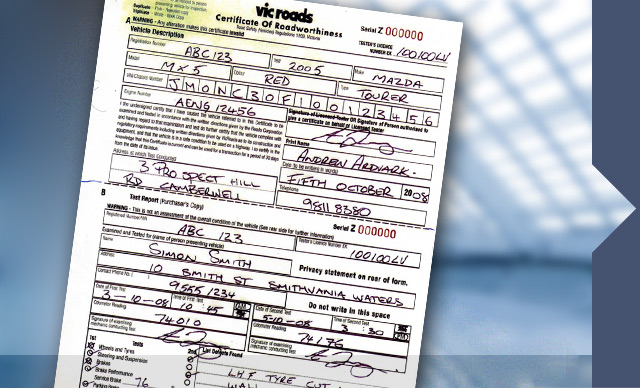 Duplicate - Purchaser copy
Triplicate - Work Book Copy
vic roads
Certificate Of Roadworthiness
Road Safety (Vehicles) Regulations 1999, Victoria
Serial Z 000000
A WARNING - Any alteration makes this certificate invalid
TESTER'S LICENCE NUMBER EX 100100LV
Vehicle Description
Registration Number ABC123
Year 2005
Make MAZDA
Model MX5
Colour RED
Type TOURER
VIN/Chassis Number JM0NC30F100123456
Engine Number AENG 12456
Signature of Licensed Tester OR Signature of Person authorised to give a certificate on behalf of Licensed Tester
Print Name
ANDREW ARDVARK.
Date (to be written in words)
FIFTH OCTOBER 2008
Address at which Test Conducted
3 PROSPECT HILL
RD CAMBERWELL
Telephone
9811 8380
B Test Report (Purchaser's Copy)
Serial Z 000000
WARNING - This is not an assessment of the overall condition of the vehicle (See rear side for further information)
Registered Number ABC 123
Tester's Licence Number EX
100100LV
Examined and Tested for (name of person presenting vehicle)
Name SIMON SMITH
Privacy statement on rear of form.
Address 10 SMITH ST SMITHVANIA WATERS
Contact Phone No. 9555 1234
Do not write in this space
Date of First Test 3-10-08
Time of First Test 10 45
Date of Second Test 5-10-08
Time of Second Test 3:30
Odometer Reading 74010
Odometer Reading 74176
Signature of examining mechanic conducting test
Signature of examining mechanic conducting test
1st Tests 2nd
List Defects Found
Wheels and Tyres
Steering and Suspension
Brakes
Brake Performance
Service Brake 76
L.H.F TYRE CUT